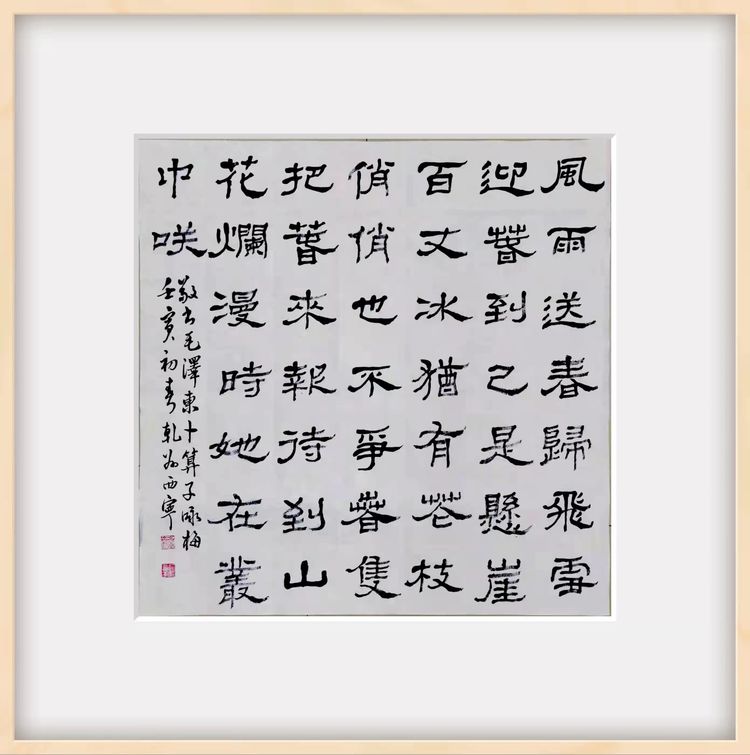 風雨送春歸飛雪
迎萅到已是懸崖
百丈冰猶有花枝
俏俏也不爭萅隻
把萅來報待到山
花爛漫時她在叢
中咲
敬书毛澤東卜算子咏梅
壬寅初春乾為西寧